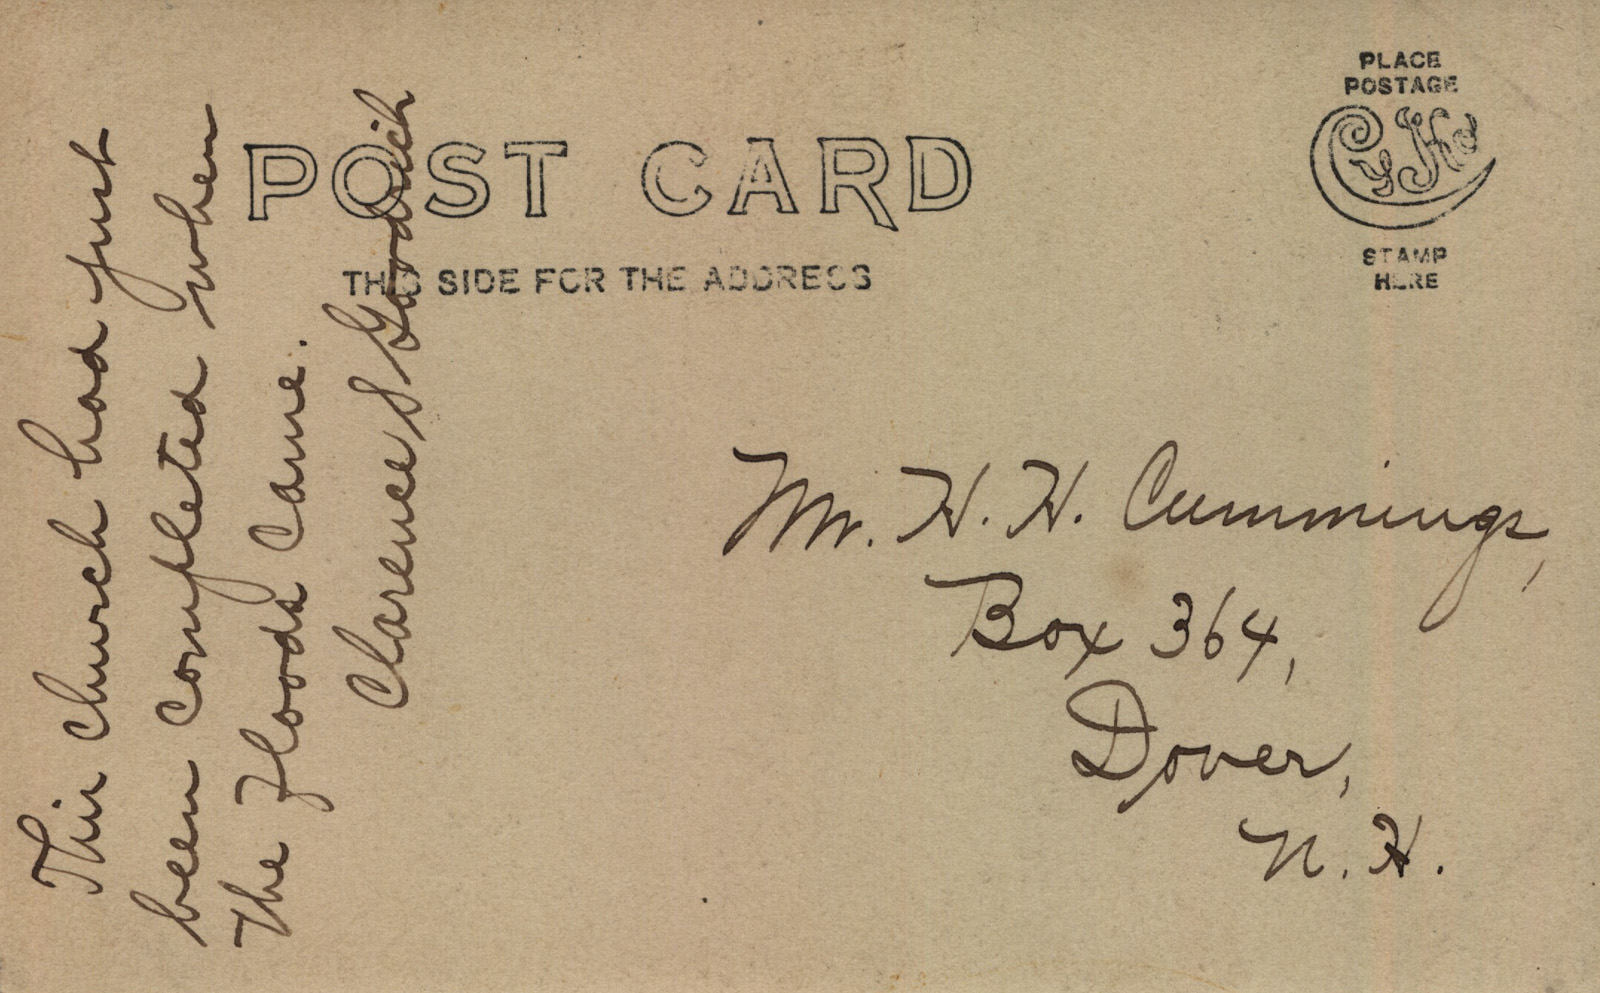 POST CARD
THIS SIDE FOR THE ADDRESS
PLACE
POSTAGE
STAMP
HERE
This church had just
been completed when
the floods came.
Clarence S Goodrich
Mr. H. H. Cummings,
Box 364,
Dover,
N. H.